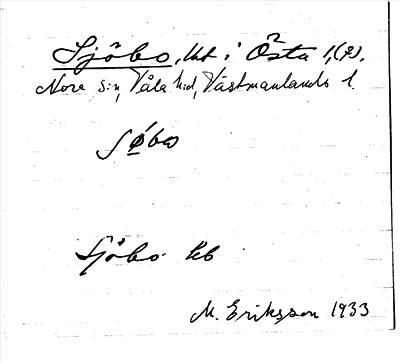 Sjöbo, lht i Östa 1,(2).
Nora s:n, Våla h:d, Västmanlands l.
Sjöbo kb
M. Eriksson 1933